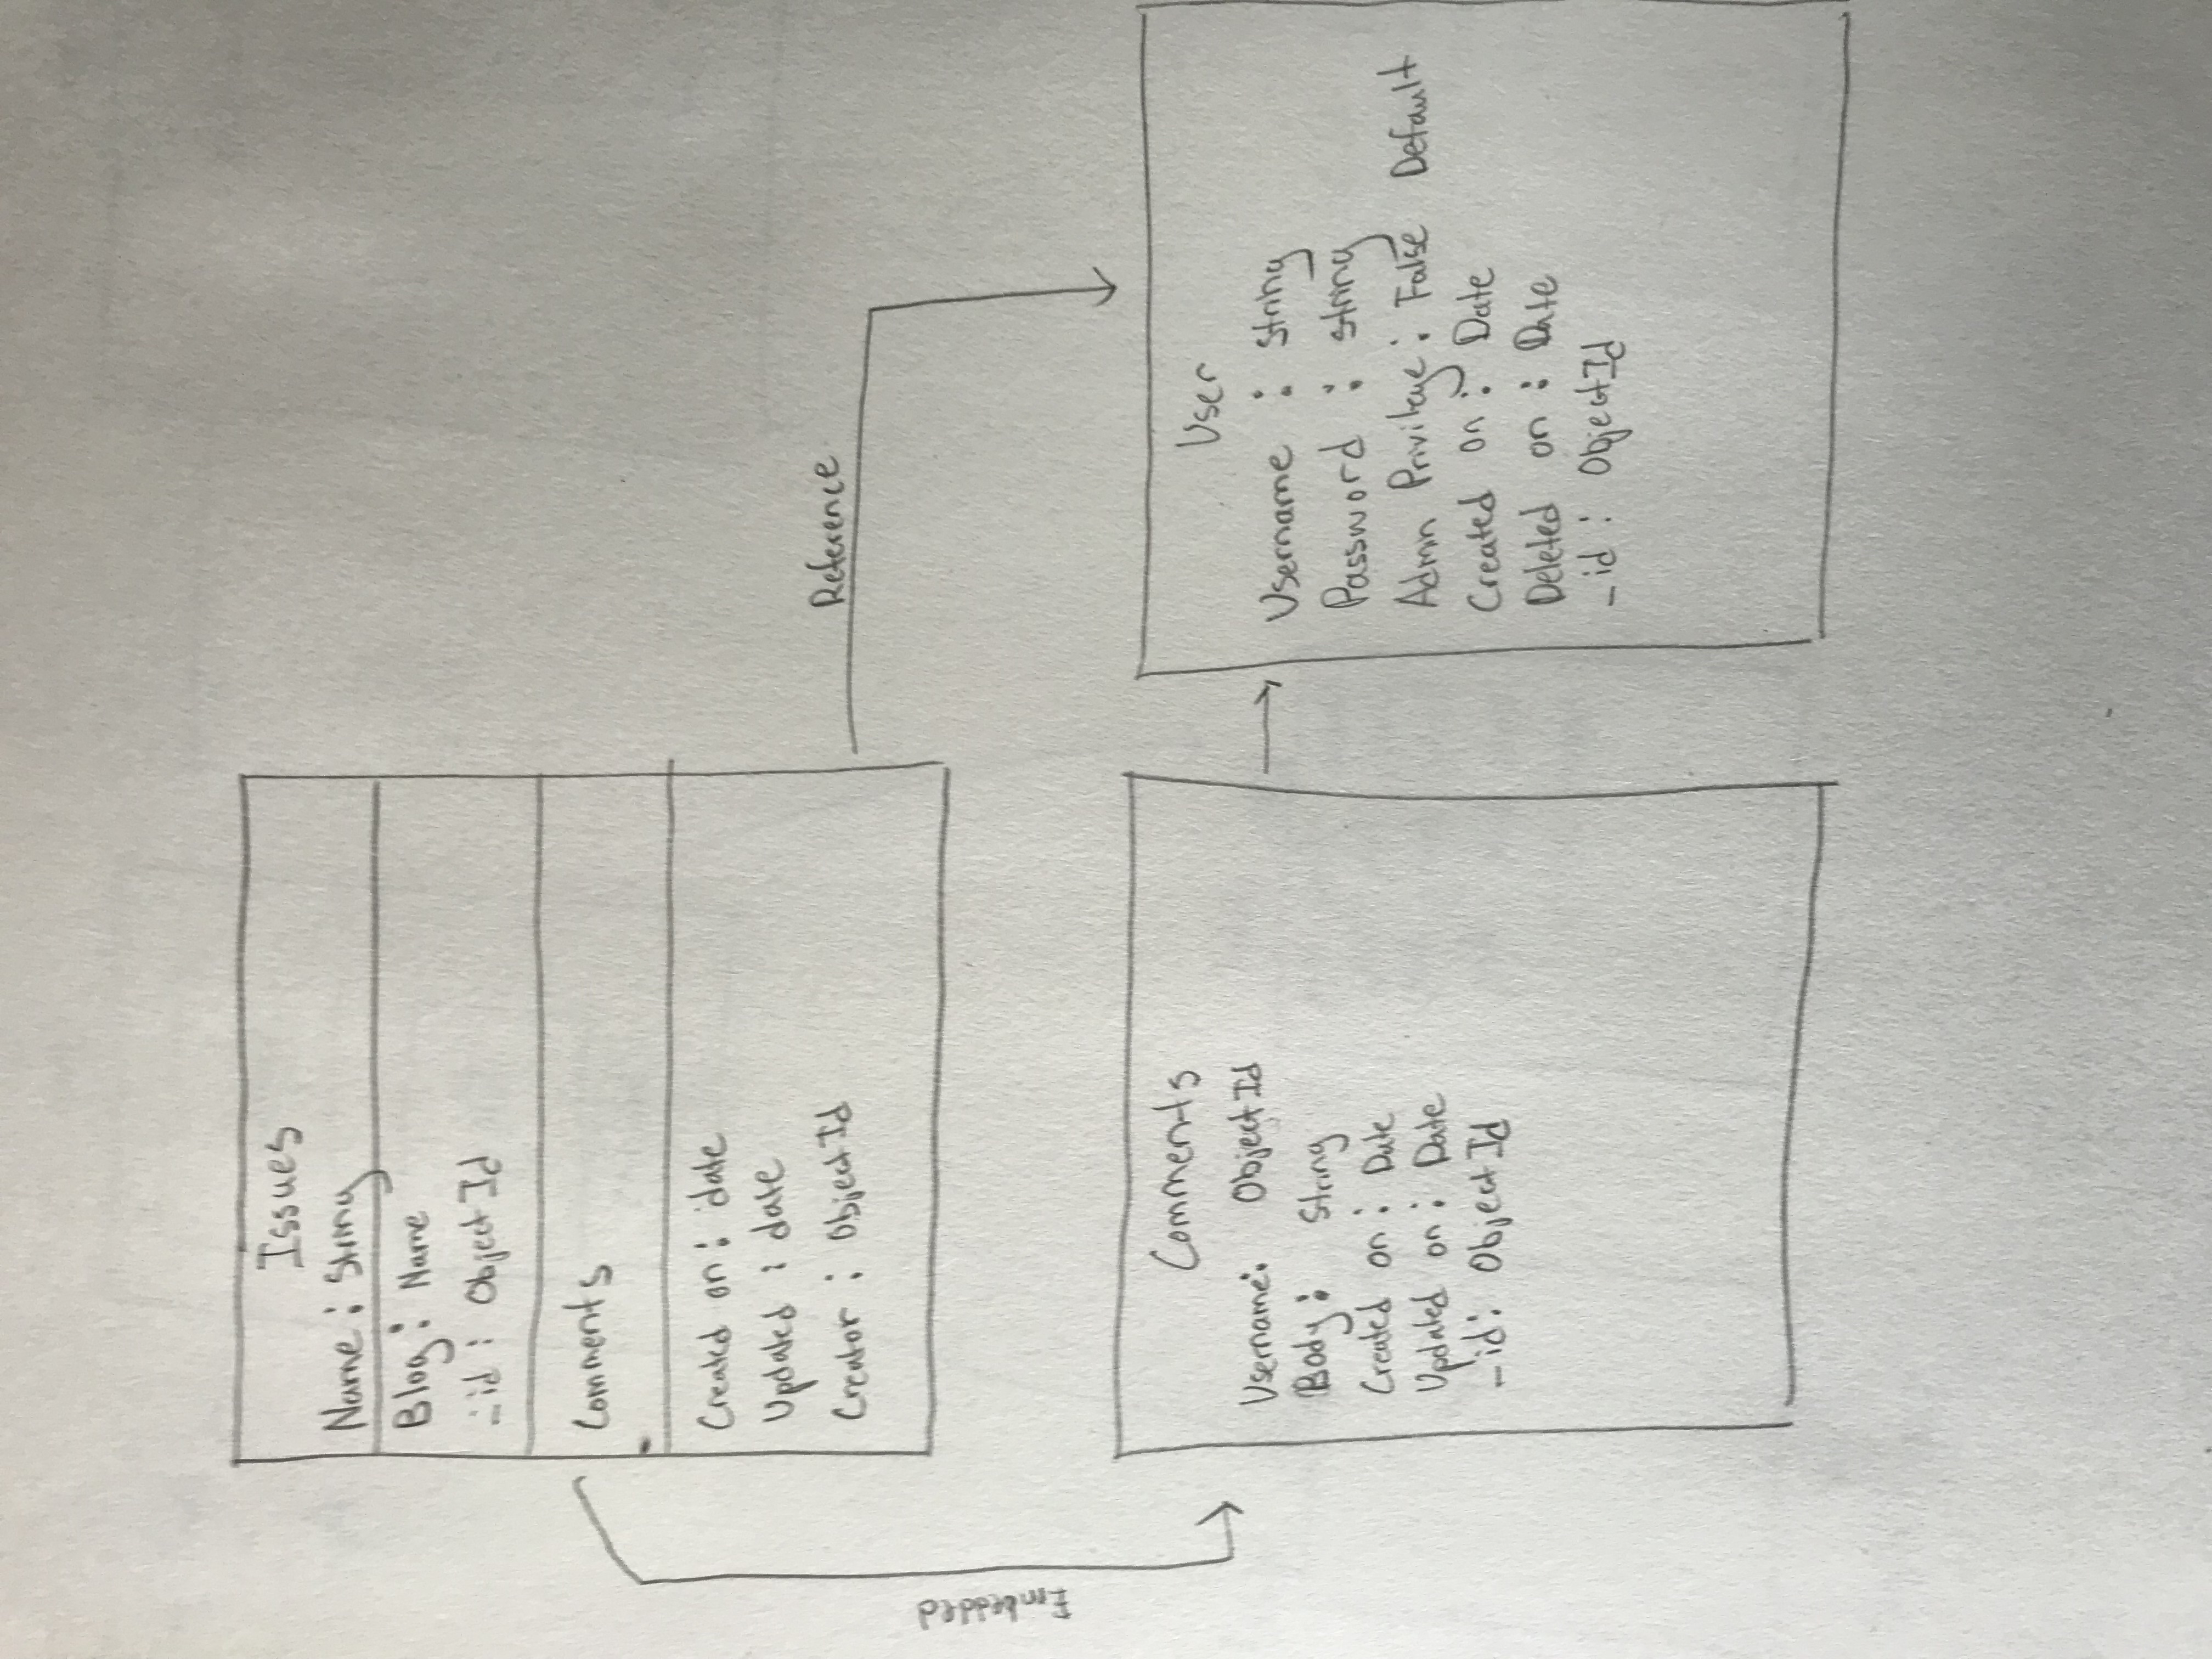 Issues
Name : String
Blog : Name
_id : ObjectId
Comments
Created on : date
Updated : date
Creator : ObjectId
Reference
Embedded
Comments
Username: ObjectId
Body : String
Created on : Date
Updated on : Date
_id : ObjectId
User
Username : string
Password : string
Admin Privilege : False Default
Created on : Date
Deleted on : Date
_id : ObjectId